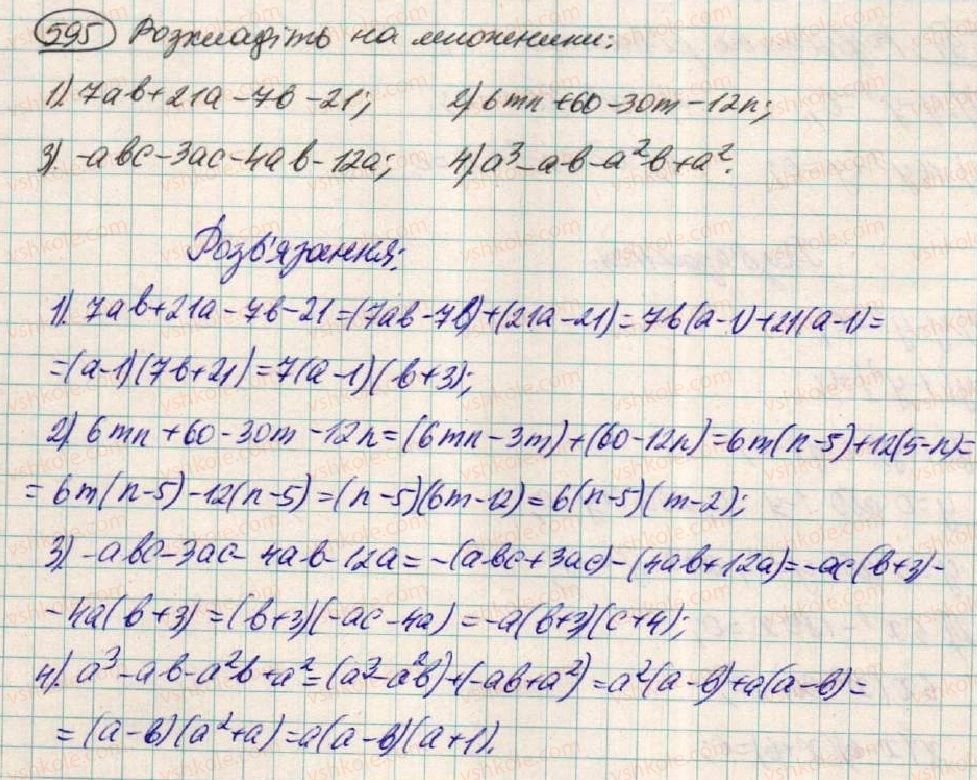 595 Розкладіть на множники:
1) 7ab+21a-7b-21; 2) 6mn+60-30m-12n;
3) -abc-3ac-4ab-12a; 4) a³-ab-a²b+a².
Розв'язання:
1) 7ab+21a-7b-21=(7ab-7b)+(21a-21)=7b(a-1)+21(a-1)=
=(a-1)(7b+21)=7(a-1)(b+3);
2) 6mn+60-30m-12n=(6mn-3m)+(60-12n)=6m(n-5)+12(5-n)=
=6m(n-5)-12(n-5)=(n-5)(6m-12)=6(n-5)(m-2);
3) -abc-3ac-4ab-12a=-(abc+3ac)-(4ab+12a)=-ac(b+3)-
-4a(b+3)=(b+3)(-ac-4a)=-a(b+3)(c+4);
4) a³-ab-a²b+a²=(a³-a²b)+(-ab+a²)=a²(a-b)+a(a-b)=
=(a-b)(a²+a)=a(a-b)(a+1).